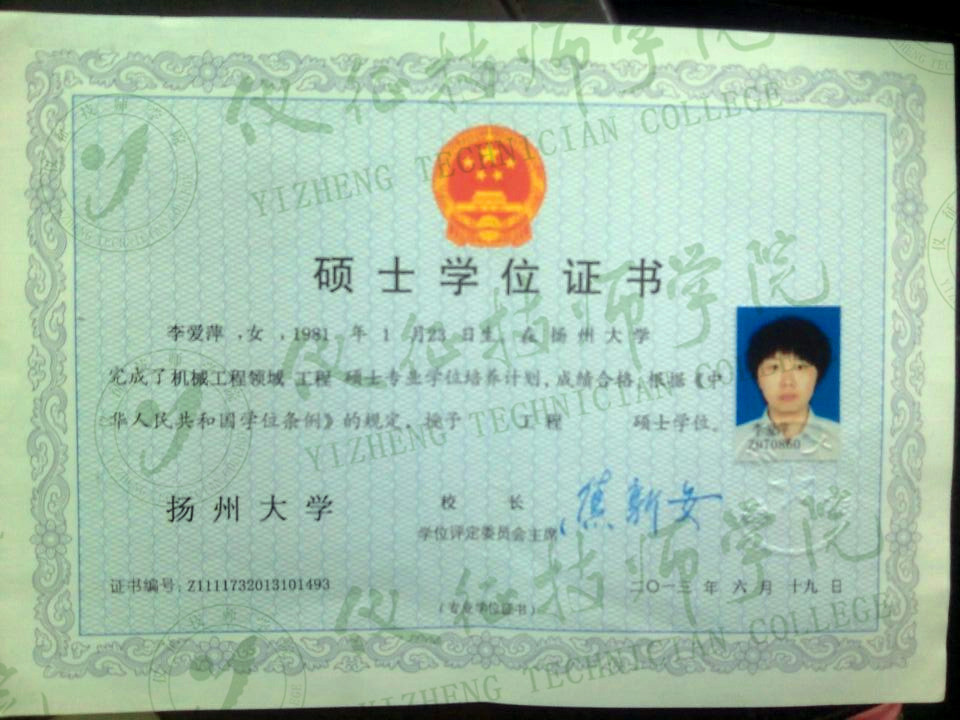 仪征技师学院
YIZHENG TECHNICIAN COLLEGE
硕士学位证书
李爱萍 ,女 ,1981 年 1 月23 日生。在 扬州大学
完成了机械工程领域 工程 硕士专业学位培养计划,成绩合格,根据《中
华人民共和国学位条例》的规定,授予 工程 硕士学位。
仪征技师学院
YIZHENG TECHNICIAN COLLEGE
李爱萍
扬州大学
校 长
学位评定委员会主席
焦新安
证书编号: Z1111732013101493
二〇一三 年 六 月 十九 日
(专业学位证书)
仪征技师学院
YIZHENG TECHNICIAN COLLEGE